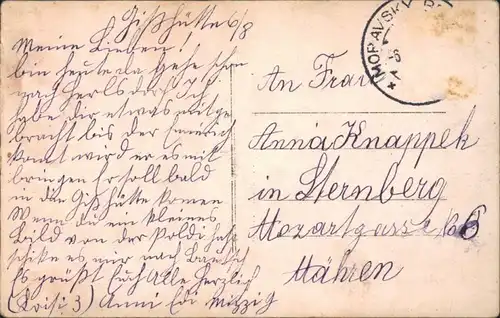 Gißhütte 6/8
Meine Lieben!
bin heute da gehe schon
nach Herlsdorf
habe dir etwas mitge
bracht bis der Heinrich
komt wird er es mit
bringen Er soll bald
in die Gißhütte komen
Wenn du ein kleines
Bild von der Poldi hast
schike es mir nach Bautsch
Es grüßt Euch Alle Herzlich
(Loisi 3) Anni Edi Mizzig
MORAVSKÝ
An Frau
Anna Knappek
in Sternberg
Mozartgasse No 6
Mähren